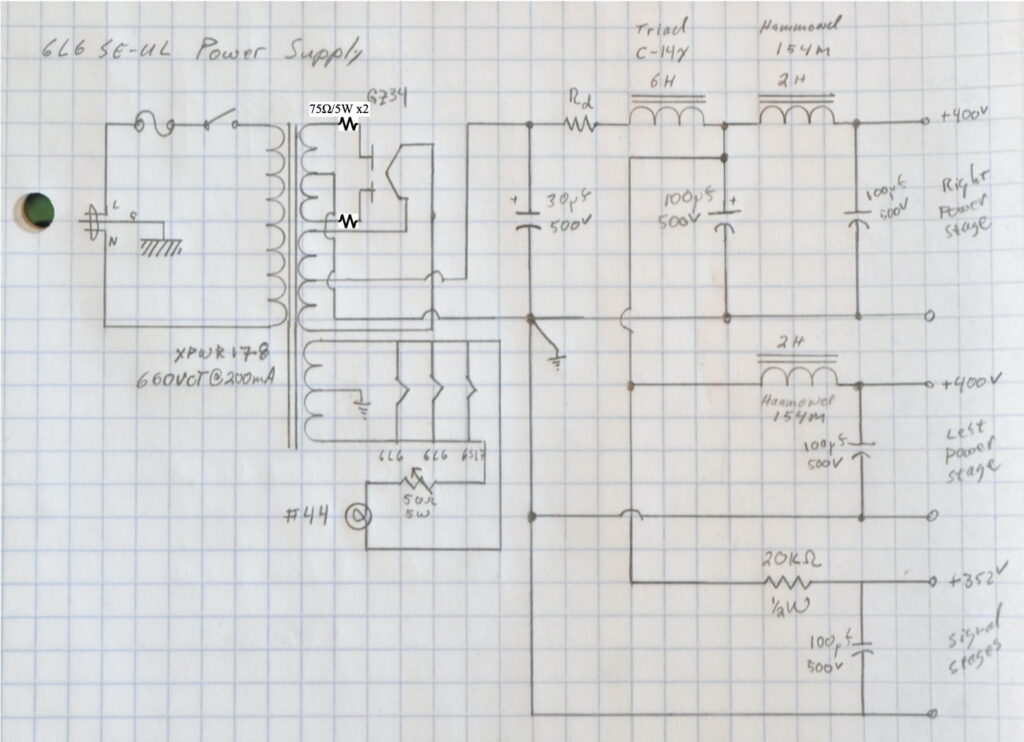 6L6 SE-UL Power Supply
Triad
C-14X
6H
Hammond
154M
2H
75Ω/5W x2
GZ34
Rd
+400V
L
G
N
+
30µf
500V
100µf
500V
+
100µf
500V
Right
Power
Stage
XPWR178
660VCT@200mA
2H
Hammond
154M
+400V
100µf
500V
Left
Power
Stage
6L6
6L6
6SL7
50Ω
5W
#44
20KΩ
½W
+352V
100µf
500V
Signal
Stages